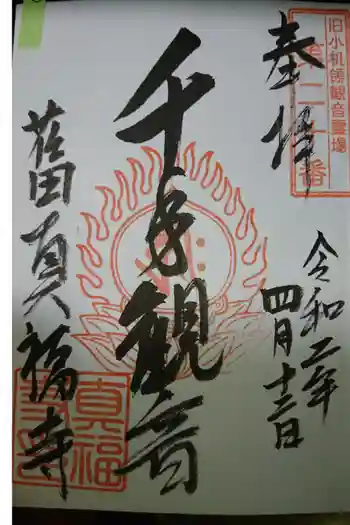 奉拝
旧小机領観音霊場
千手観音
舊真福寺
令和二年
四月十二日
真福